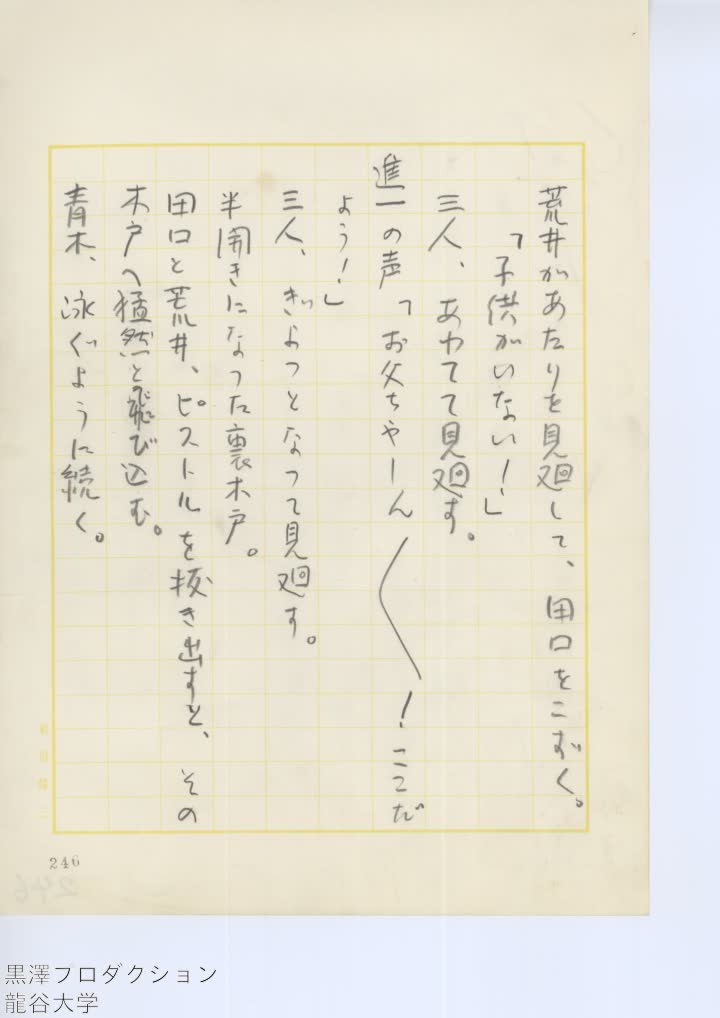 荒井があたりを見廻して、田口をこずく。
「子供がいない！」
三人、あわてて見廻す。
進一の声「お父ちゃーん〱！ここだ
よう！」
三人、ぎょっとなって見廻す。
半開きになった裏木戸。
田口と荒井、ピストルを抜き出すと、その
木戸へ猛然と飛び込む。
青木、泳ぐように続く。
246
黒澤プロダクション
龍谷大学